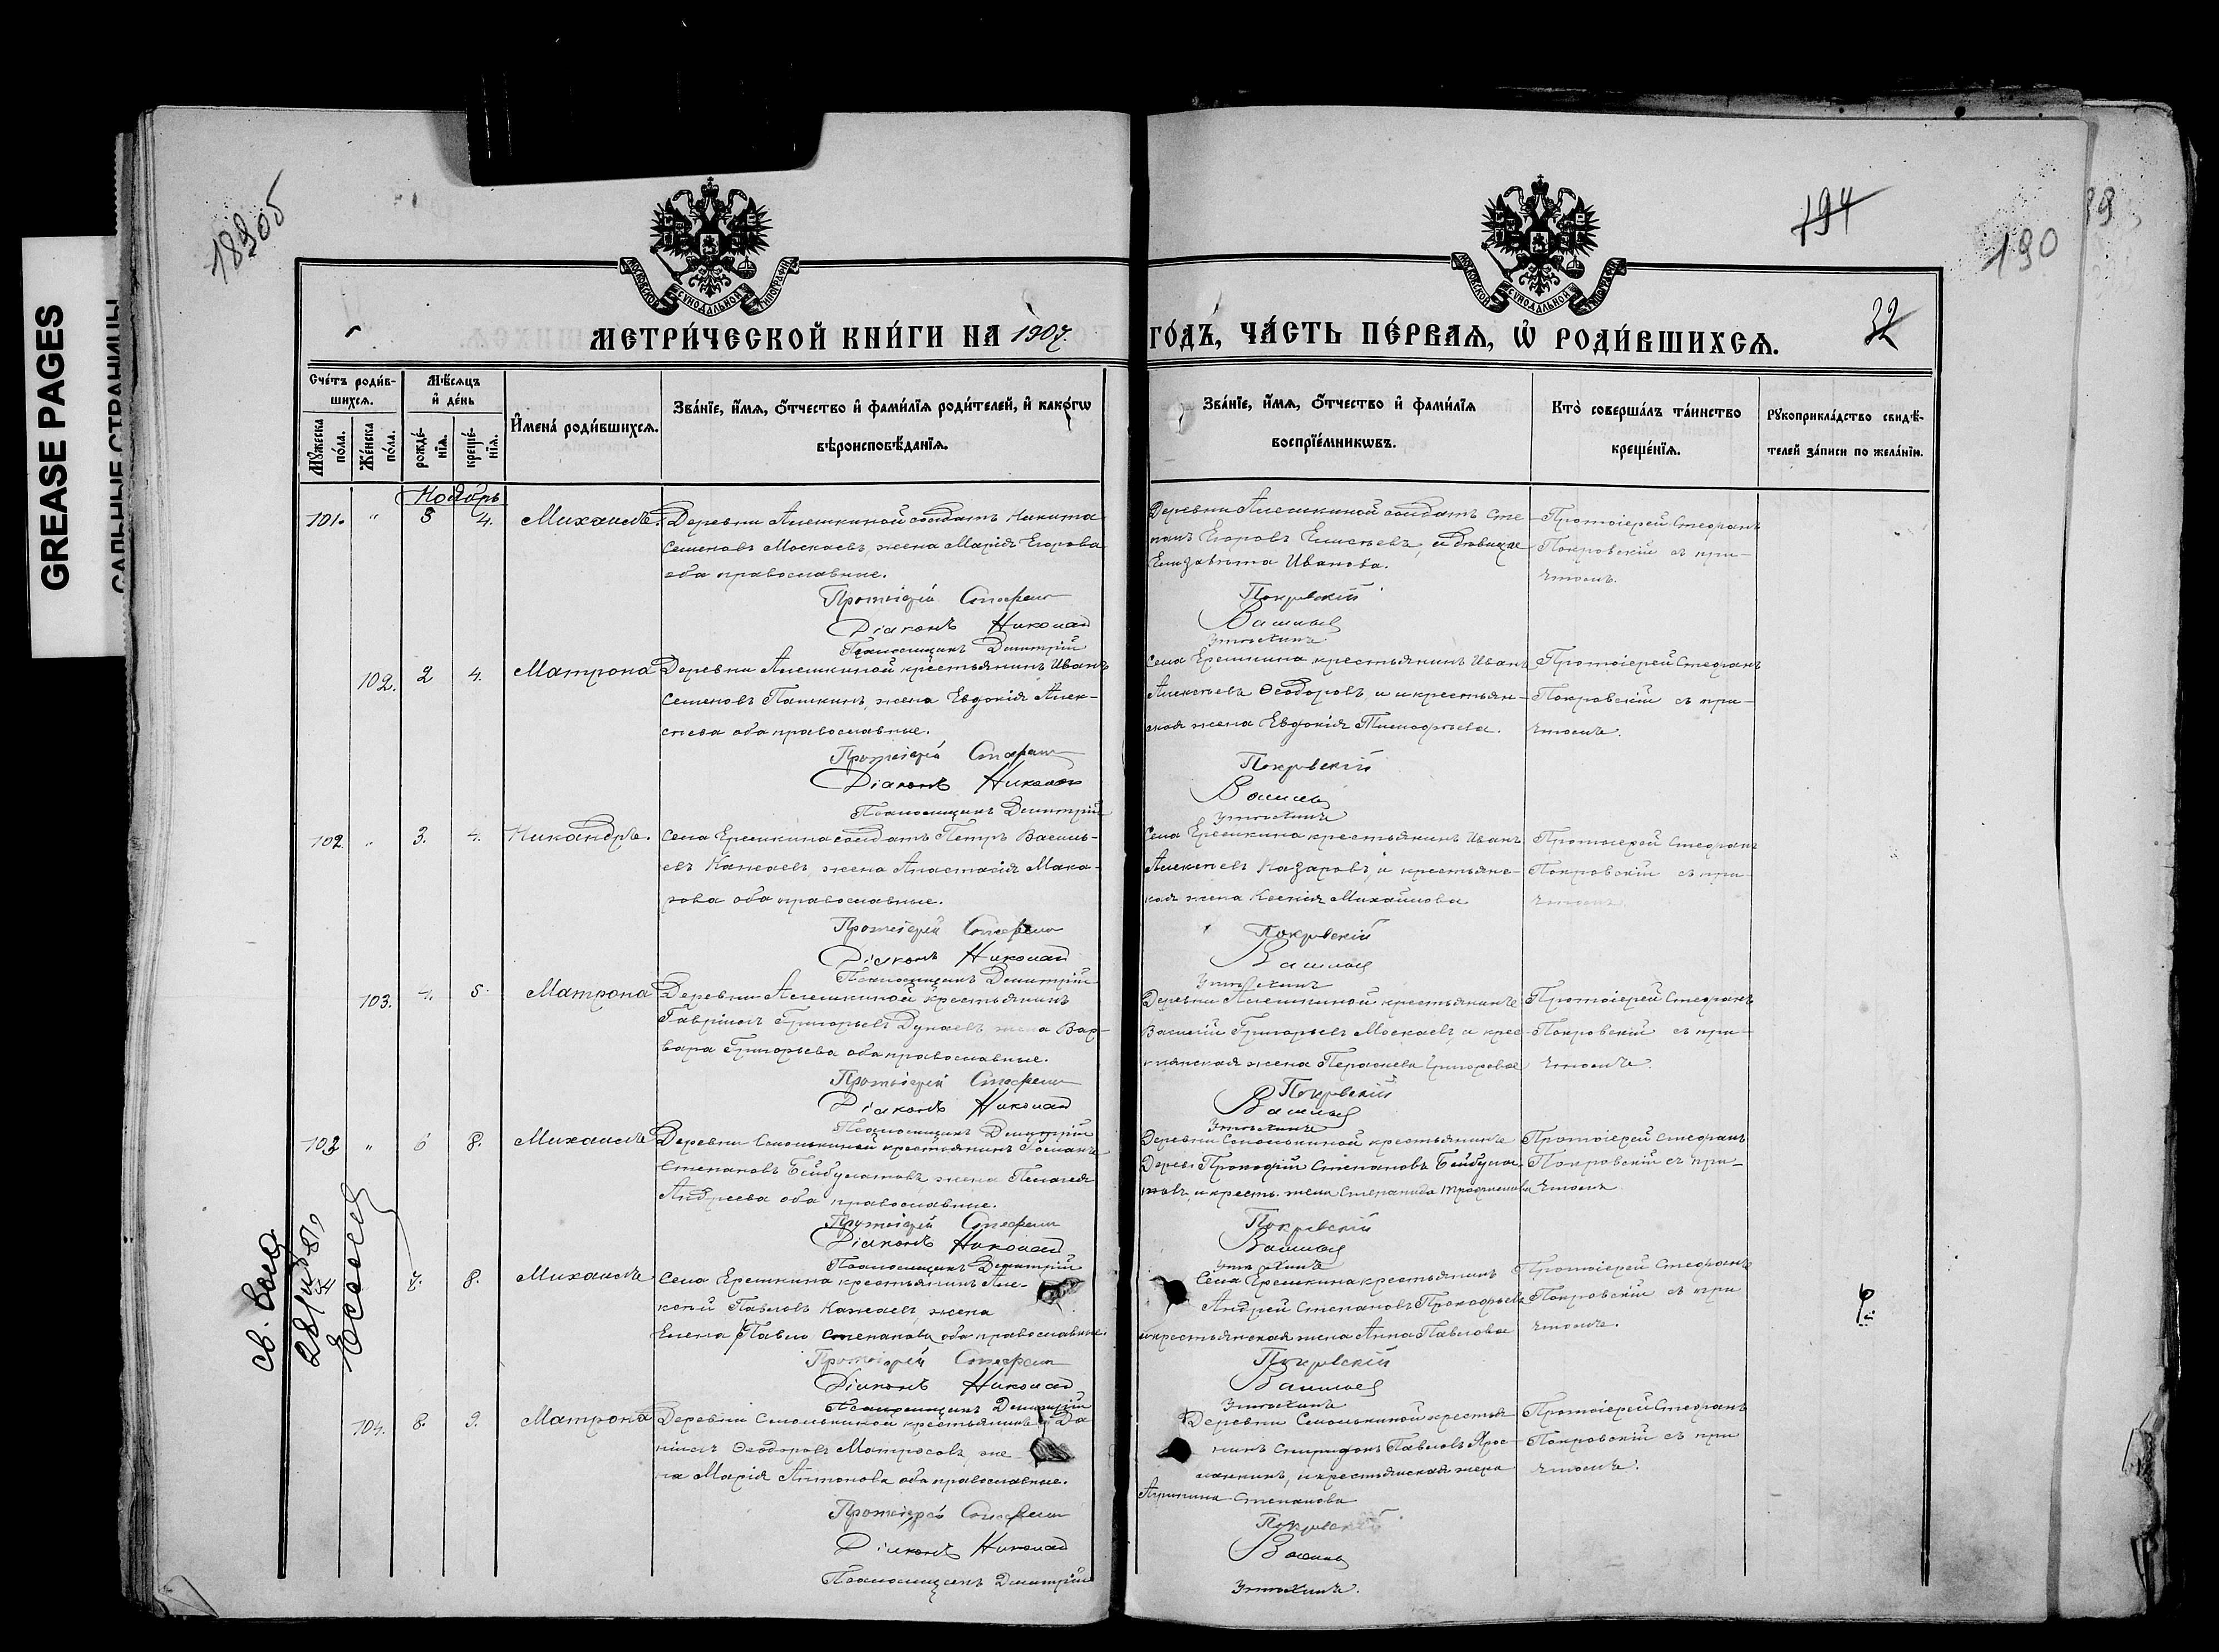 GREASE PAGES
САЛЬНЫЕ СТРАНИЦЫ
189об
194
190
32
МОСКОВСКОЙ СΥНОДАЛЬНОЙ ТИПОГРАФІИ
МОСКОВСКОЙ СΥНОДАЛЬНОЙ ТИПОГРАФІИ
МЕТРИ́ЧЕСКОЙ КНИ́ГИ НА 1907.
ГО́ДЪ, ЧА́СТЬ ПЕ́РВАѦ, Ѿ РОДИ́ВШИХСѦ.
Сче́тъ роди́в-
шихсѧ.
Мꙋжеска по́ла.
Же́нска по́ла.
Мѣ́сѧцъ
и҆ де́нь
рожде́-
нїѧ.
креще́-
нїѧ.
И҆мена́ роди́вшихсѧ.
Зва́нїе, и҆́мѧ, ѻ҆́тчество и҆ фами́лїѧ роди́телей, и҆ како́гѡ
вѣроисповѣ́данїѧ.
Зва́нїе, и҆́мѧ, ѻ҆́тчество и҆ фами́лїѧ
воспрїе́мникѡвъ.
Кто̀ соверша́лъ та́инство
креще́нїѧ.
Рꙋкоприкла́дство свидѣ́-
телей за́писи по жела́нїю.
Ноябрь
101. " 3 4. Михаилъ. Деревни Алешкиной солдатъ Никита
Семеновъ Москаевъ, жена Марія Егорова
оба православные.
Протоіерей Стефанъ
Діаконъ Николай
Псаломщикъ Димитрій
Деревни Алешкиной солдатъ Сте
панъ Егоровъ Елисѣевъ, и дѣвица
Елизавета Иванова.
Покровскій
Васильев
Утѣхинъ
Протоіерей Стефанъ
Покровскій съ при-
чтомъ.
102. 2 4. Матрона Деревни Алешкиной крестьянинъ Иванъ
Семеновъ Пашкинъ, жена Евдокія Алек-
сѣева оба православные.
Протоіерей Стефанъ
Діаконъ Николай
Псаломщикъ Димитрій
Села Ерешкина крестьянинъ Иванъ
Алексѣевъ Ѳеодоровъ и крестьян-
ская жена Евдокія Тимофѣева.
Покровскій
Васильев
Утѣхинъ
Протоіерей Стефанъ
Покровскій съ при-
чтомъ.
102 " 3. 4. Никандръ. Села Ерешкина солдатъ Петръ Василь-
евъ Кажаевъ, жена Анастасія Мака-
рова оба православные.
Протоіерей Стефанъ
Діаконъ Николай
Псаломщикъ Димитрій
Села Ерешкина крестьянинъ Иванъ
Алексѣевъ Назаровъ, и крестьянс-
кая жена Ксенія Михайлова
Покровскій
Васильев
Утѣхинъ
Протоіерей Стефанъ
Покровскій съ при-
чтомъ.
103. 4. 5. Матрона Деревни Алешкиной крестьянинъ
Гавріилъ Григорьевъ Дунаевъ жена Вар-
вара Григорьева оба православные.
Протоіерей Стефанъ
Діаконъ Николай
Псаломщикъ Димитрій
Деревни Алешкиной крестьянинъ
Василій Григорьевъ Москаевъ, и крес-
тьянская жена Параскева Григорьева
Покровскій
Васильев
Утѣхинъ
Протоіерей Стефанъ
Покровскій съ при-
чтомъ.
103 " 6 8. Михаилъ Деревни Смолькиной крестьянинъ Романъ
Степановъ Бейбулатовъ, жена Пелагея
Андреева оба православные.
Протоіерей Стефанъ
Діаконъ Николай
Псаломщикъ Димитрій
Деревни Смолькиной крестьянинъ
Прокофій Степановъ Бейбула-
товъ, и кресть. жена Степанида Трофимова
Покровскій
Васильев
Утѣхинъ
Протоіерей Стефанъ
Покровскій съ при-
чтомъ
7. 8. Михаилъ Села Ерешкина крестьянинъ Але-
ксѣй Павловъ Кажаевъ, жена
Елена Степанова оба православные.
Протоіерей Стефанъ
Діаконъ Николай
Псаломщикъ Димитрій
Села Ерешкина крестьянинъ
Андрей Степановъ Прокофьевъ
и крестьянская жена Анна Павлова
Покровскій
Васильев
Утѣхинъ
Протоіерей Стефанъ
Покровскій съ при
чтомъ.
104. 8. 9. Матрона Деревни Смолькиной крестьянинъ Да
ніилъ Ѳеодоровъ Матросовъ же-
на Марія Антонова оба православные.
Протоіерей Стефанъ
Діаконъ Николай
Псаломщикъ Димитрій
Деревни Смолькиной крестья
нинъ Спиридонъ Павловъ
и крестьянская жена
Агрипина Степанова
Покровскій
Васильев
Утѣхинъ.
Протоіерей Стефанъ
Покровскій съ при
чтомъ.